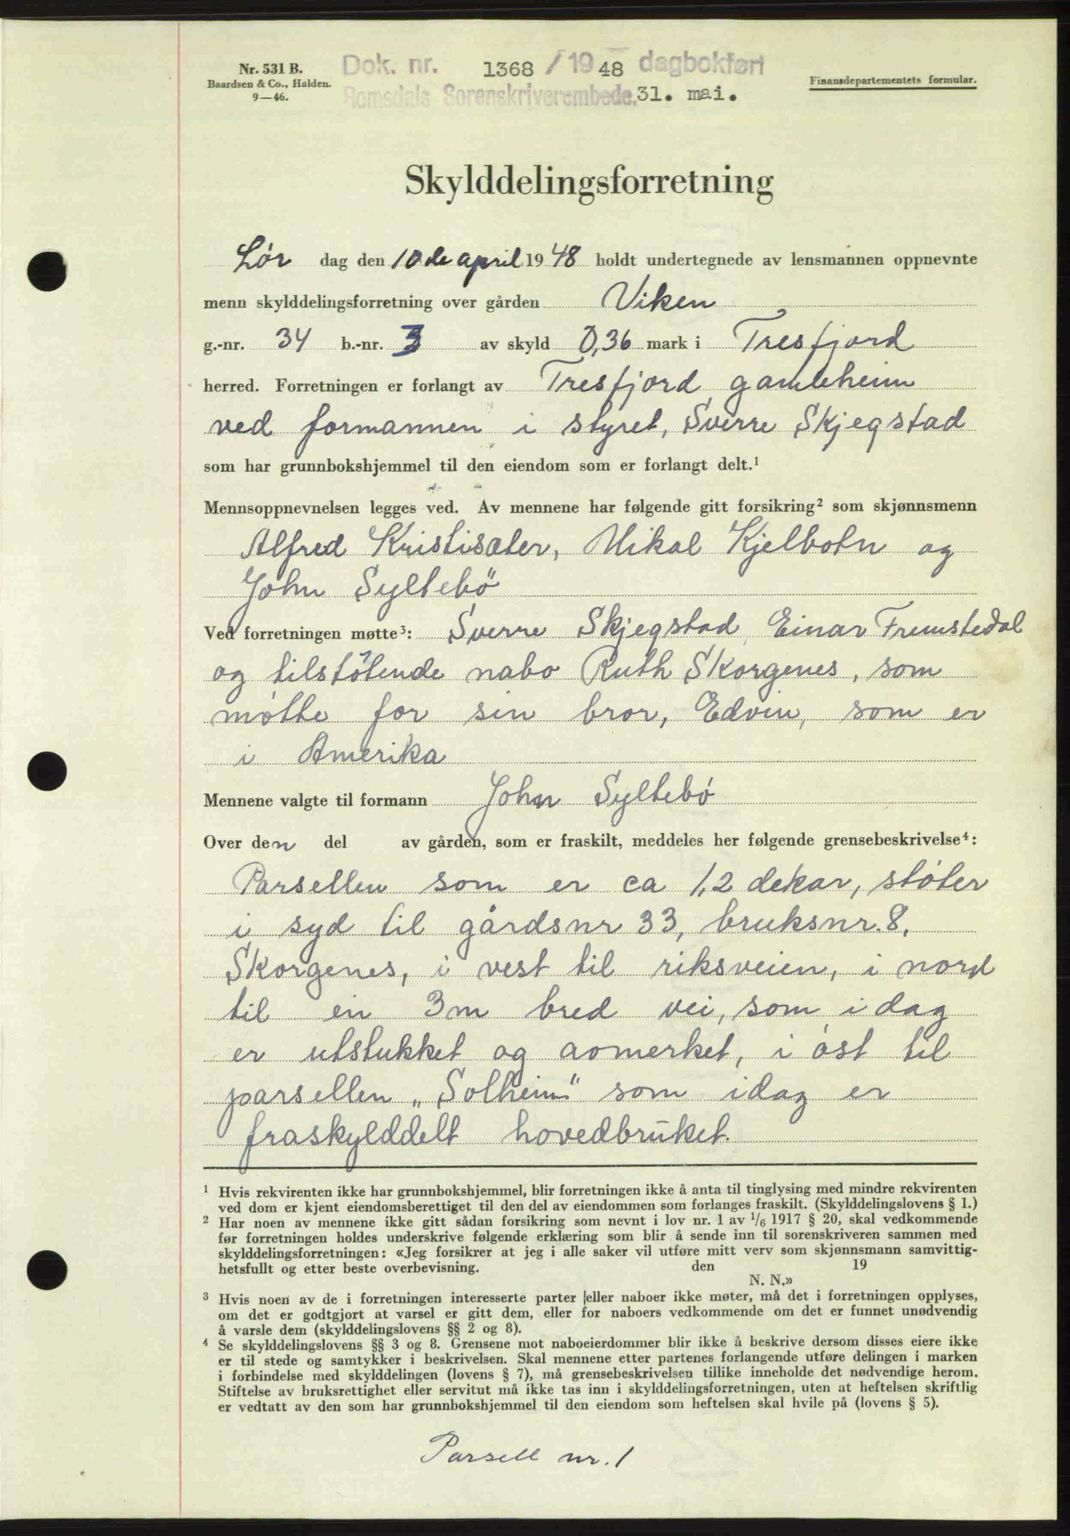 Nr. 531 B.
Baardsen & Co., Halden.
9—46.
Dok. nr. 1368 / 19 48 dagbokført
Romsdals Sorenskriverembede. 31. mai.
Finansdepartementets formular.
Skylddelingsforretning
Lør dag den 10de april 1948 holdt undertegnede av lensmannen oppnevnte
menn skylddelingsforretning over gården Viken
g.-nr. 34 b.-nr. 3 av skyld 0,36 mark i Tresfjord
herred. Forretningen er forlangt av Tresfjord gamleheim
ved formannen i styret, Sverre Skjegstad
som har grunnbokshjemmel til den eiendom som er forlangt delt.¹
Mennsoppnevnelsen legges ved. Av mennene har følgende gitt forsikring² som skjønnsmenn
Alfred Kristisæter, Mikal Kjelbotn og
John Syltebö
Ved forretningen møtte³: Sverre Skjegstad Einar Fremstedal
og tilstøtende nabo Ruth Skorgenes, som
møtte for sin bror, Edvin, som er
i Amerika
Mennene valgte til formann John Syltebø
Over den del av gården, som er fraskilt, meddeles her følgende grensebeskrivelse⁴:
Parsellen som er ca 1,2 dekar, støter
i syd til gårdsnr 33, bruksnr. 8,
Skorgenes, i vest til riksveien, i nord
til en 3m bred vei, som i dag
er utstukket og avmerket, i øst til
parsellen „Solheim" som idag er
fraskylddelt hovedbruket.
¹ Hvis rekvirenten ikke har grunnbokshjemmel, blir forretningen ikke å anta til tinglysing med mindre rekvirenten
ved dom er kjent eiendomsberettiget til den del av eiendommen som forlanges fraskilt. (Skylddelingslovens § 1.)
² Har noen av mennene ikke gitt sådan forsikring som nevnt i lov nr. 1 av 1/6 1917 § 20, skal vedkommende
før forretningen holdes underskrive følgende erklæring som blir å sende inn til sorenskriveren sammen med
skylddelingsforretningen: «Jeg forsikrer at jeg i alle saker vil utføre mitt verv som skjønnsmann samvittig-
hetsfullt og etter beste overbevisning. den 19
N. N.»
³ Hvis noen av de i forretningen interesserte parter eller naboer ikke møter, må det i forretningen opplyses,
om det er godtgjort at varsel er gitt dem, eller for naboers vedkommende om det er funnet unødvendig
å varsle dem (skylddelingslovens §§ 2 og 8).
⁴ Se skylddelingslovens §§ 3 og 8. Grensene mot naboeierdommer blir ikke å beskrive dersom disses eiere ikke
er til stede og samtykker i beskrivelsen. Skal mennene etter partenes forlangende utføre delingen i marken
i forbindelse med skylddelingen (lovens § 7), må grensebeskrivelsen tillike inneholde det nødvendige herom.
Stiftelse av bruksrettighet eller servitut må ikke tas inn i skylddelingsforretningen, uten at heftelsen skriftlig
er vedtatt av den som har grunnbokshjemmel til den eiendom som heftelsen skal hvile på (lovens § 5).
Parsell nr. 1